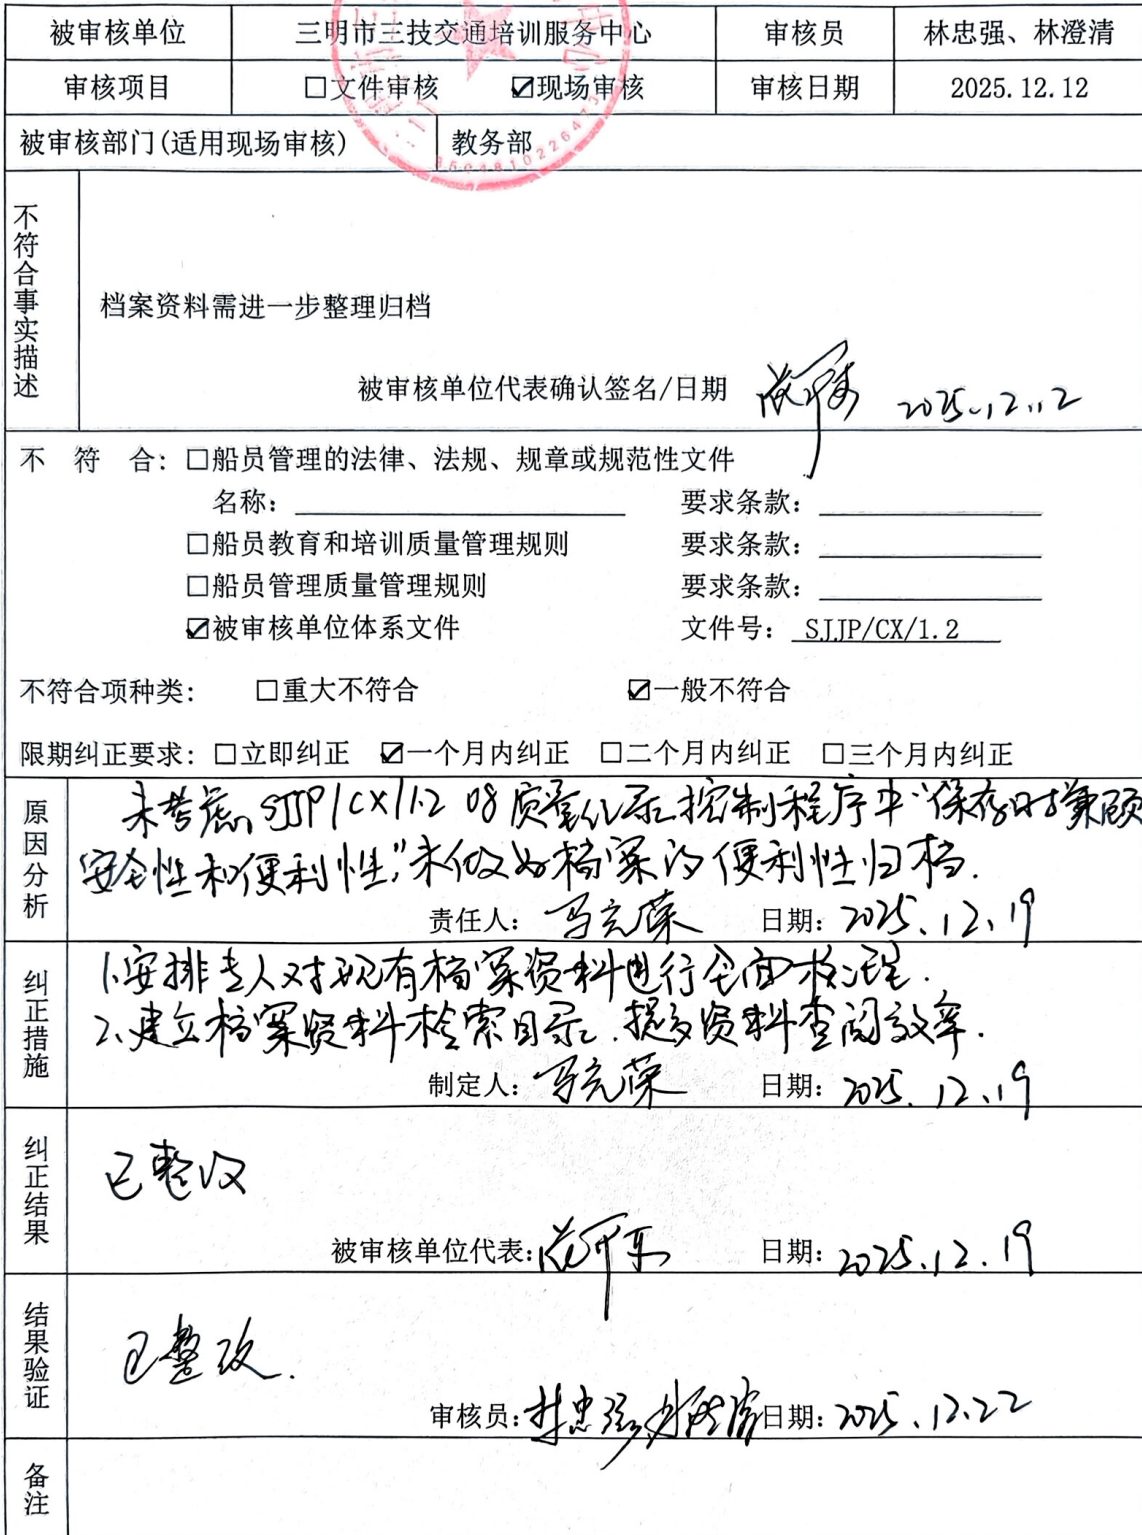 被审核单位 三明市三技交通培训服务中心 审核员 林忠强、林澄清
审核项目 □文件审核 ☑现场审核 审核日期 2025.12.12
被审核部门(适用现场审核) 教务部
不符合事实描述
档案资料需进一步整理归档
被审核单位代表确认签名/日期 2025.12.12
不 符 合: □船员管理的法律、法规、规章或规范性文件
名称: 要求条款:
□船员教育和培训质量管理规则 要求条款:
□船员管理质量管理规则 要求条款:
☑被审核单位体系文件 文件号: SJJP/CX/1.2
不符合项种类: □重大不符合 ☑一般不符合
限期纠正要求: □立即纠正 ☑一个月内纠正 □二个月内纠正 □三个月内纠正
原因分析
未考虑SJJP/CX/1.2 08质量记录控制程序中“保存时兼顾
安全性和便利性”,未做好档案的便利性归档.
责任人: 马立荣 日期: 2025.12.19
纠正措施
1.安排专人对现有档案资料进行全面梳理.
2.建立档案资料检索目录.提高资料查阅效率.
制定人: 马立荣 日期: 2025.12.19
纠正结果
已整改
被审核单位代表: 日期: 2025.12.19
结果验证
已整改.
审核员: 林忠强 林澄清 日期: 2025.12.22
备注